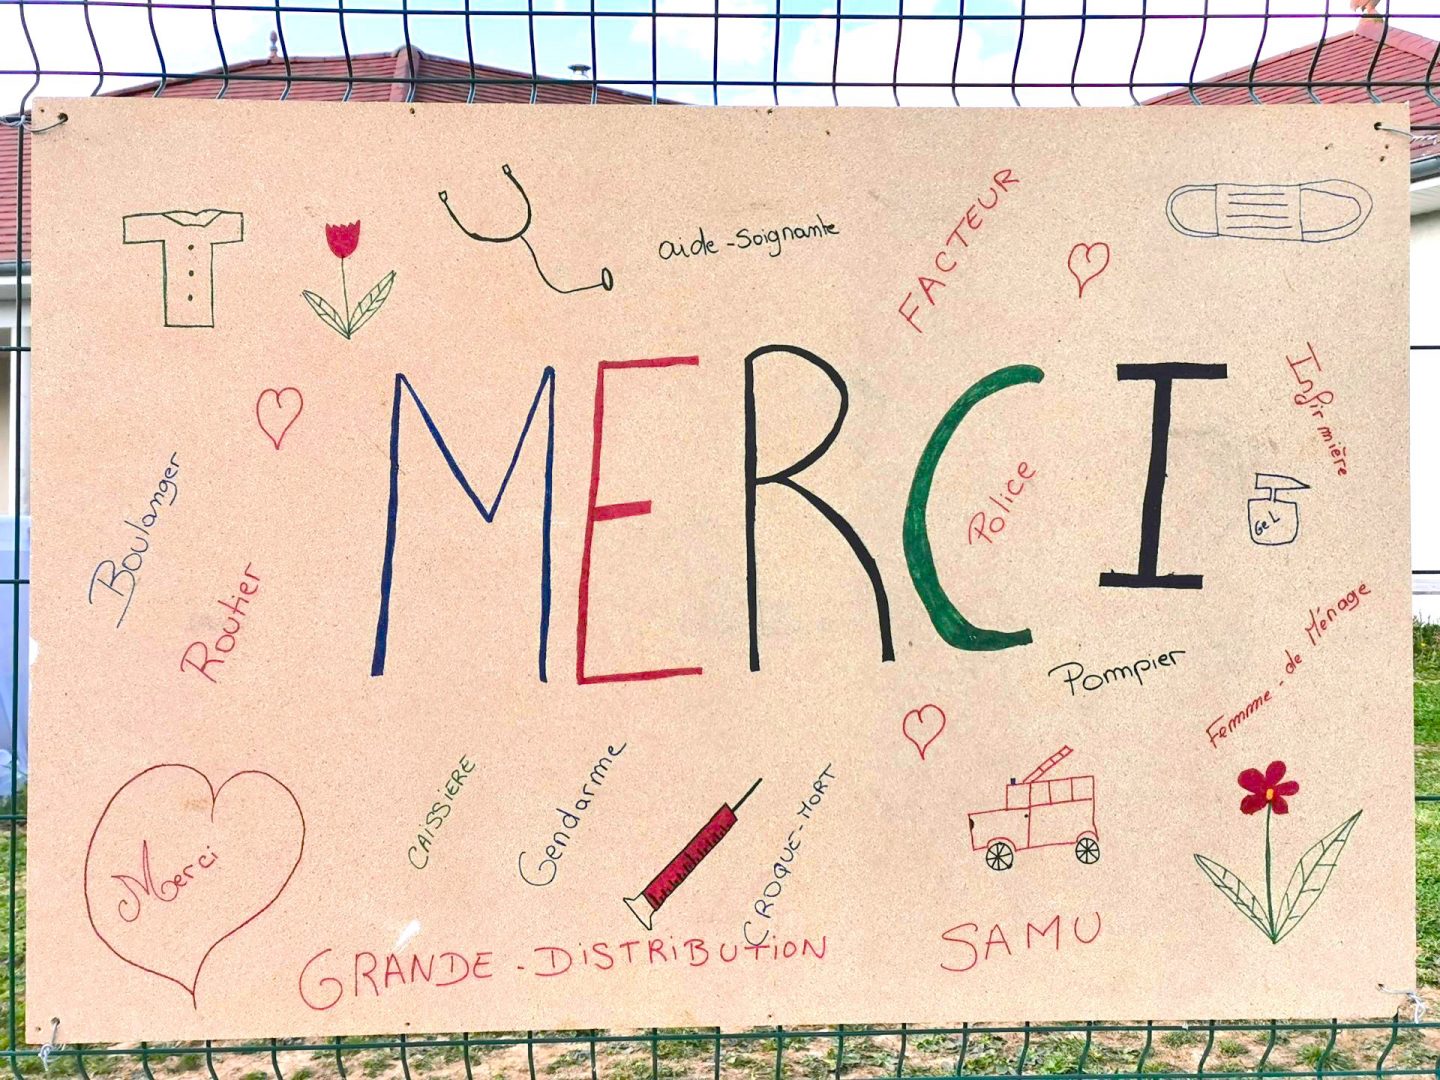 aide-Soignante
FACTEUR
MERCI
Infirmière
Police
GeL
Boulanger
Routier
Pompier
Femme-de Ménage
Merci
CAISSIERE
Gendarme
CROQUE-MORT
GRANDE-DISTRIBUTION
SAMU